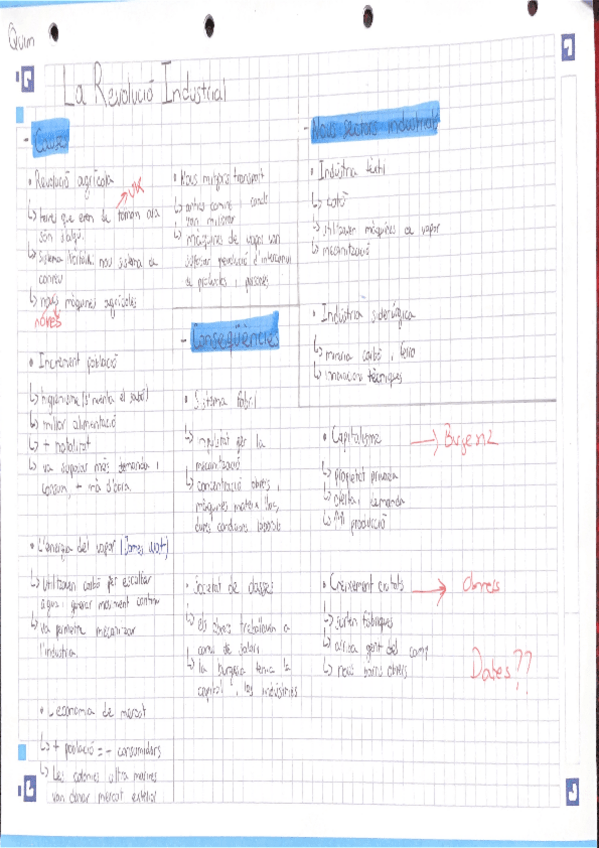 Quim
La Revolució Industrial
- Causes
• Revolució agrícola
↳ terres que eren de tothom ara
són d'algú.
↳ Sistema Norfolk: nou sistema de
conreu
↳ nous màquines agrícoles
noves
• Increment població
↳ higienisme (s'inventa el sabó)
↳ millor alimentació
↳ + natalitat
↳ va suposar més demanda i
consum, + mà d'obra
• L'energia del vapor (James Watt)
↳ Utilitzaven carbó per escalfar
aigua i generar moviment continu
↳ va permetre mecanitzar
l'industria
• L'economia de mercat
↳ + població = - consumidors
↳ Les colonies ultra marines
van donar mercat exterior
• Nous mitjans transport
↳ antres camins canals
van millorar
↳ màquines de vapor van
suposar revolució d'intercanvi
de productes i persones
- Conseqüències
• Sistema fabril
↳ impulsat per la
mecanització
↳ concentració obrers,
màquines matera lloc,
dures condicions laborals
• Societat de classes
↳ els obrers treballaven a
canvi de salari
↳ la burgesia tenia el
control les indústries
- Nous sectors industrials
• Indústria tèxtil
↳ cotó
↳ utilitzaven màquines de vapor
↳ mecanització
• Indústria siderúrgica
↳ mineria carbó i ferro
↳ innovacions tècniques
• Capitalisme → Burgesos
↳ propietat privada
↳ oferta i demanda
↳ producció
• Creixement ciutats → Obrers
↳ surten fàbriques
↳ arriba gent del camp
↳ nous barris obrers
Dates??